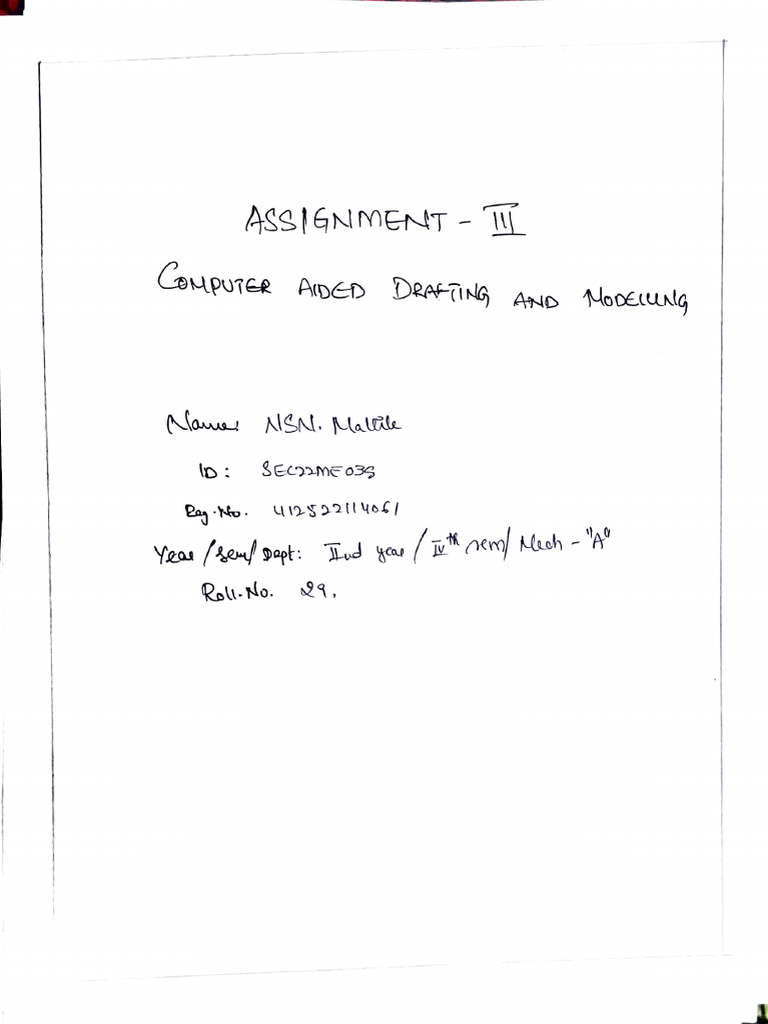 ASSIGNMENT - III
COMPUTER AIDED DRAFTING AND MODELLING
Name: NSN.
ID: SEC22ME035
Reg.No. 412522114061
Year/Sem/Dept: IInd year / IVth sem/ Mech - "A"
Roll.No. 29.